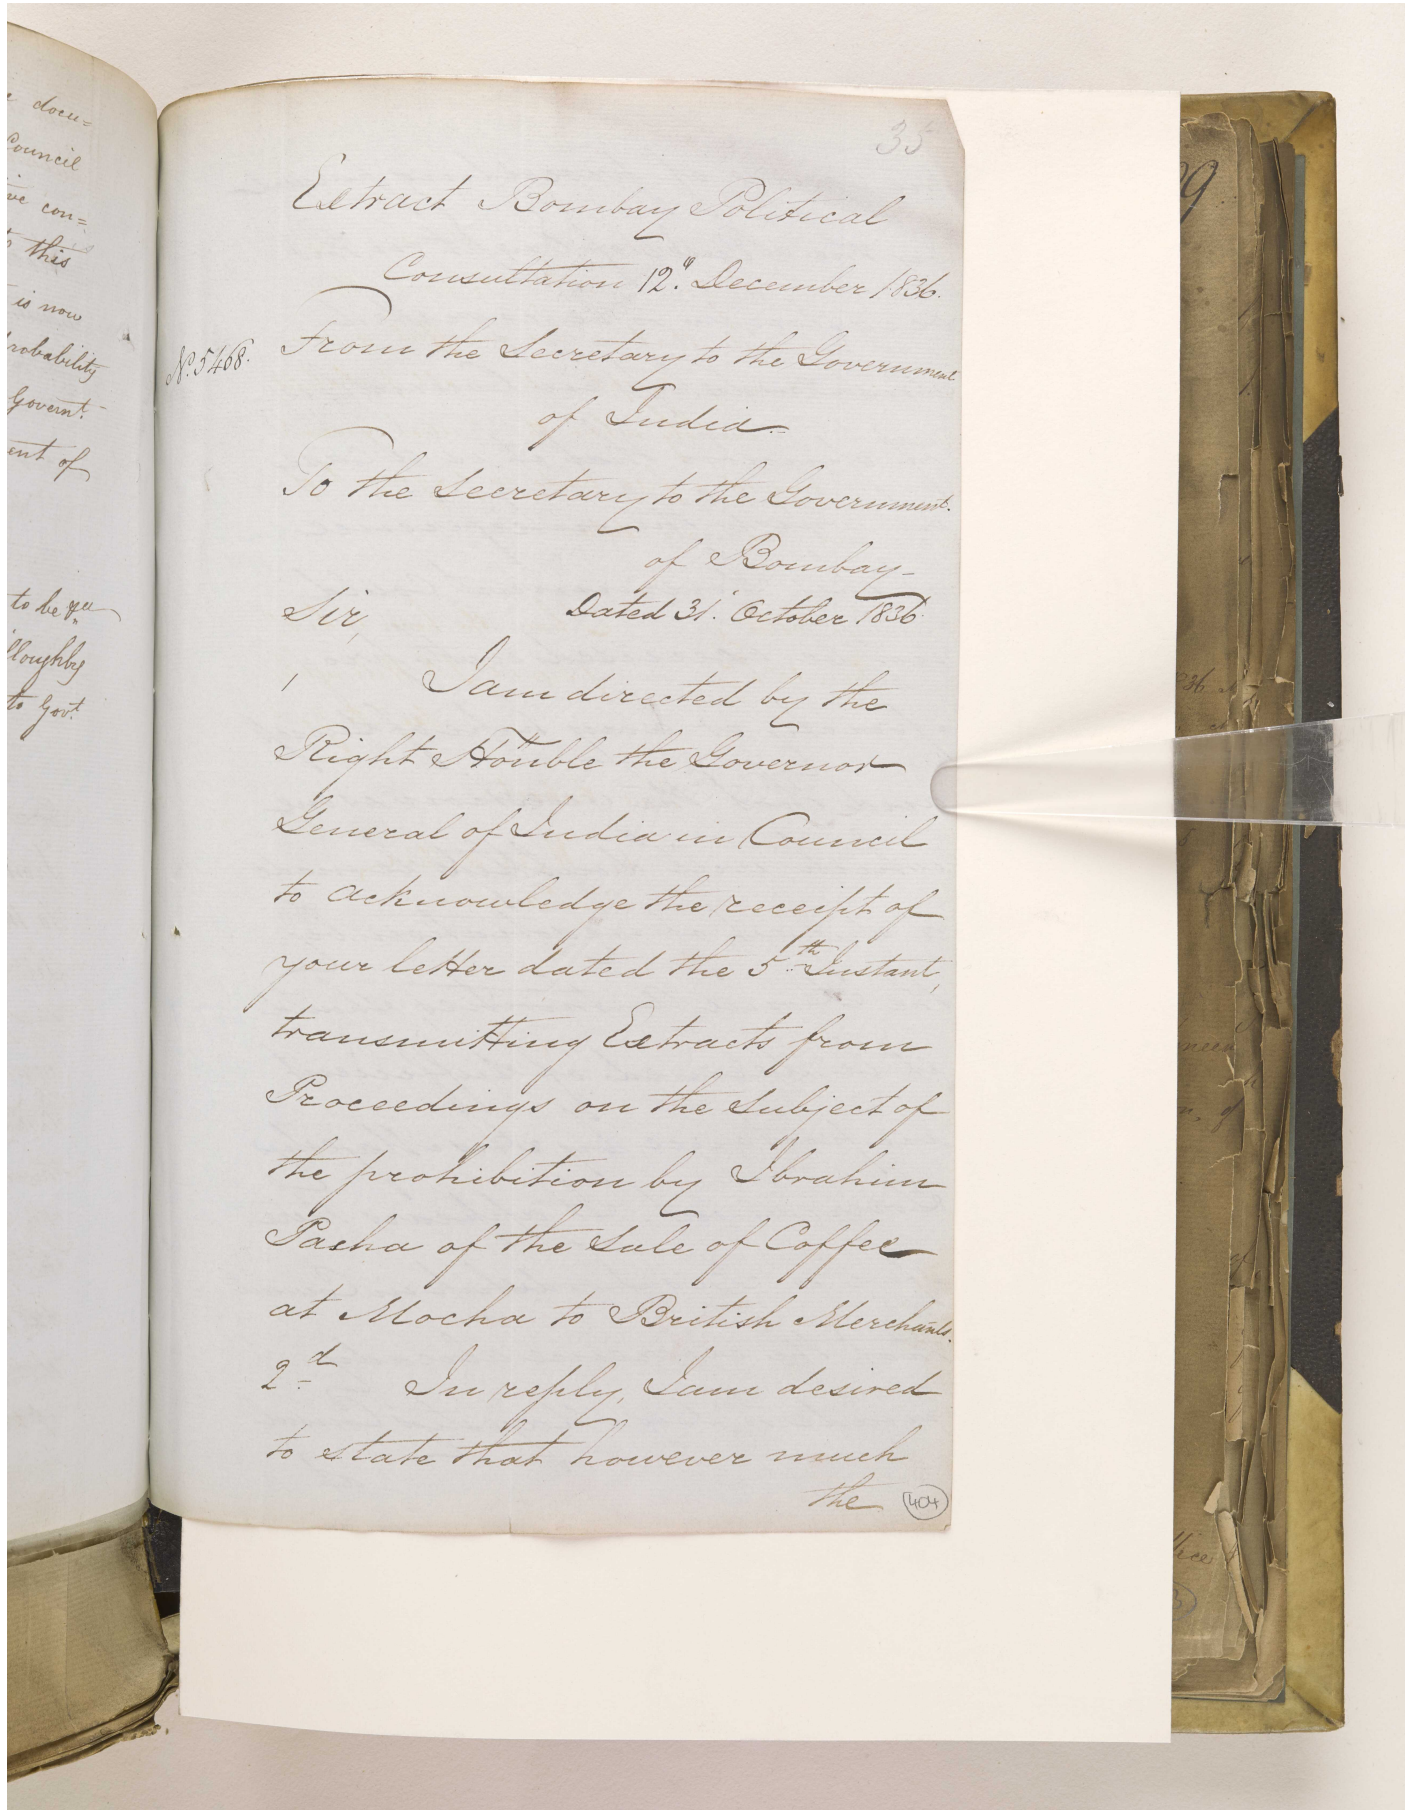 e docu=
Council
ive con=
to this
t is now
probability
Govern.t
ent of
to be
lloughby
to Gov.t
35
Extract Bombay Political
Consultation 12.th December 1836.
No. 5468.
From the Secretary to the Government
of India
To the Secretary to the Government.
of Bombay
Dated 31. October 1836
Sir,
1 I am directed by the
Right Honble the Governor
General of India in Council
to acknowledge the receipt of
your letter dated the 5.th Instant,
transmitting Extracts from
Proceedings on the subject of
the prohibition by Ibrahim
Pasha of the sale of Coffee
at Mocha to British Merchants.
2.d In reply, I am desired
to state that however much
the
404